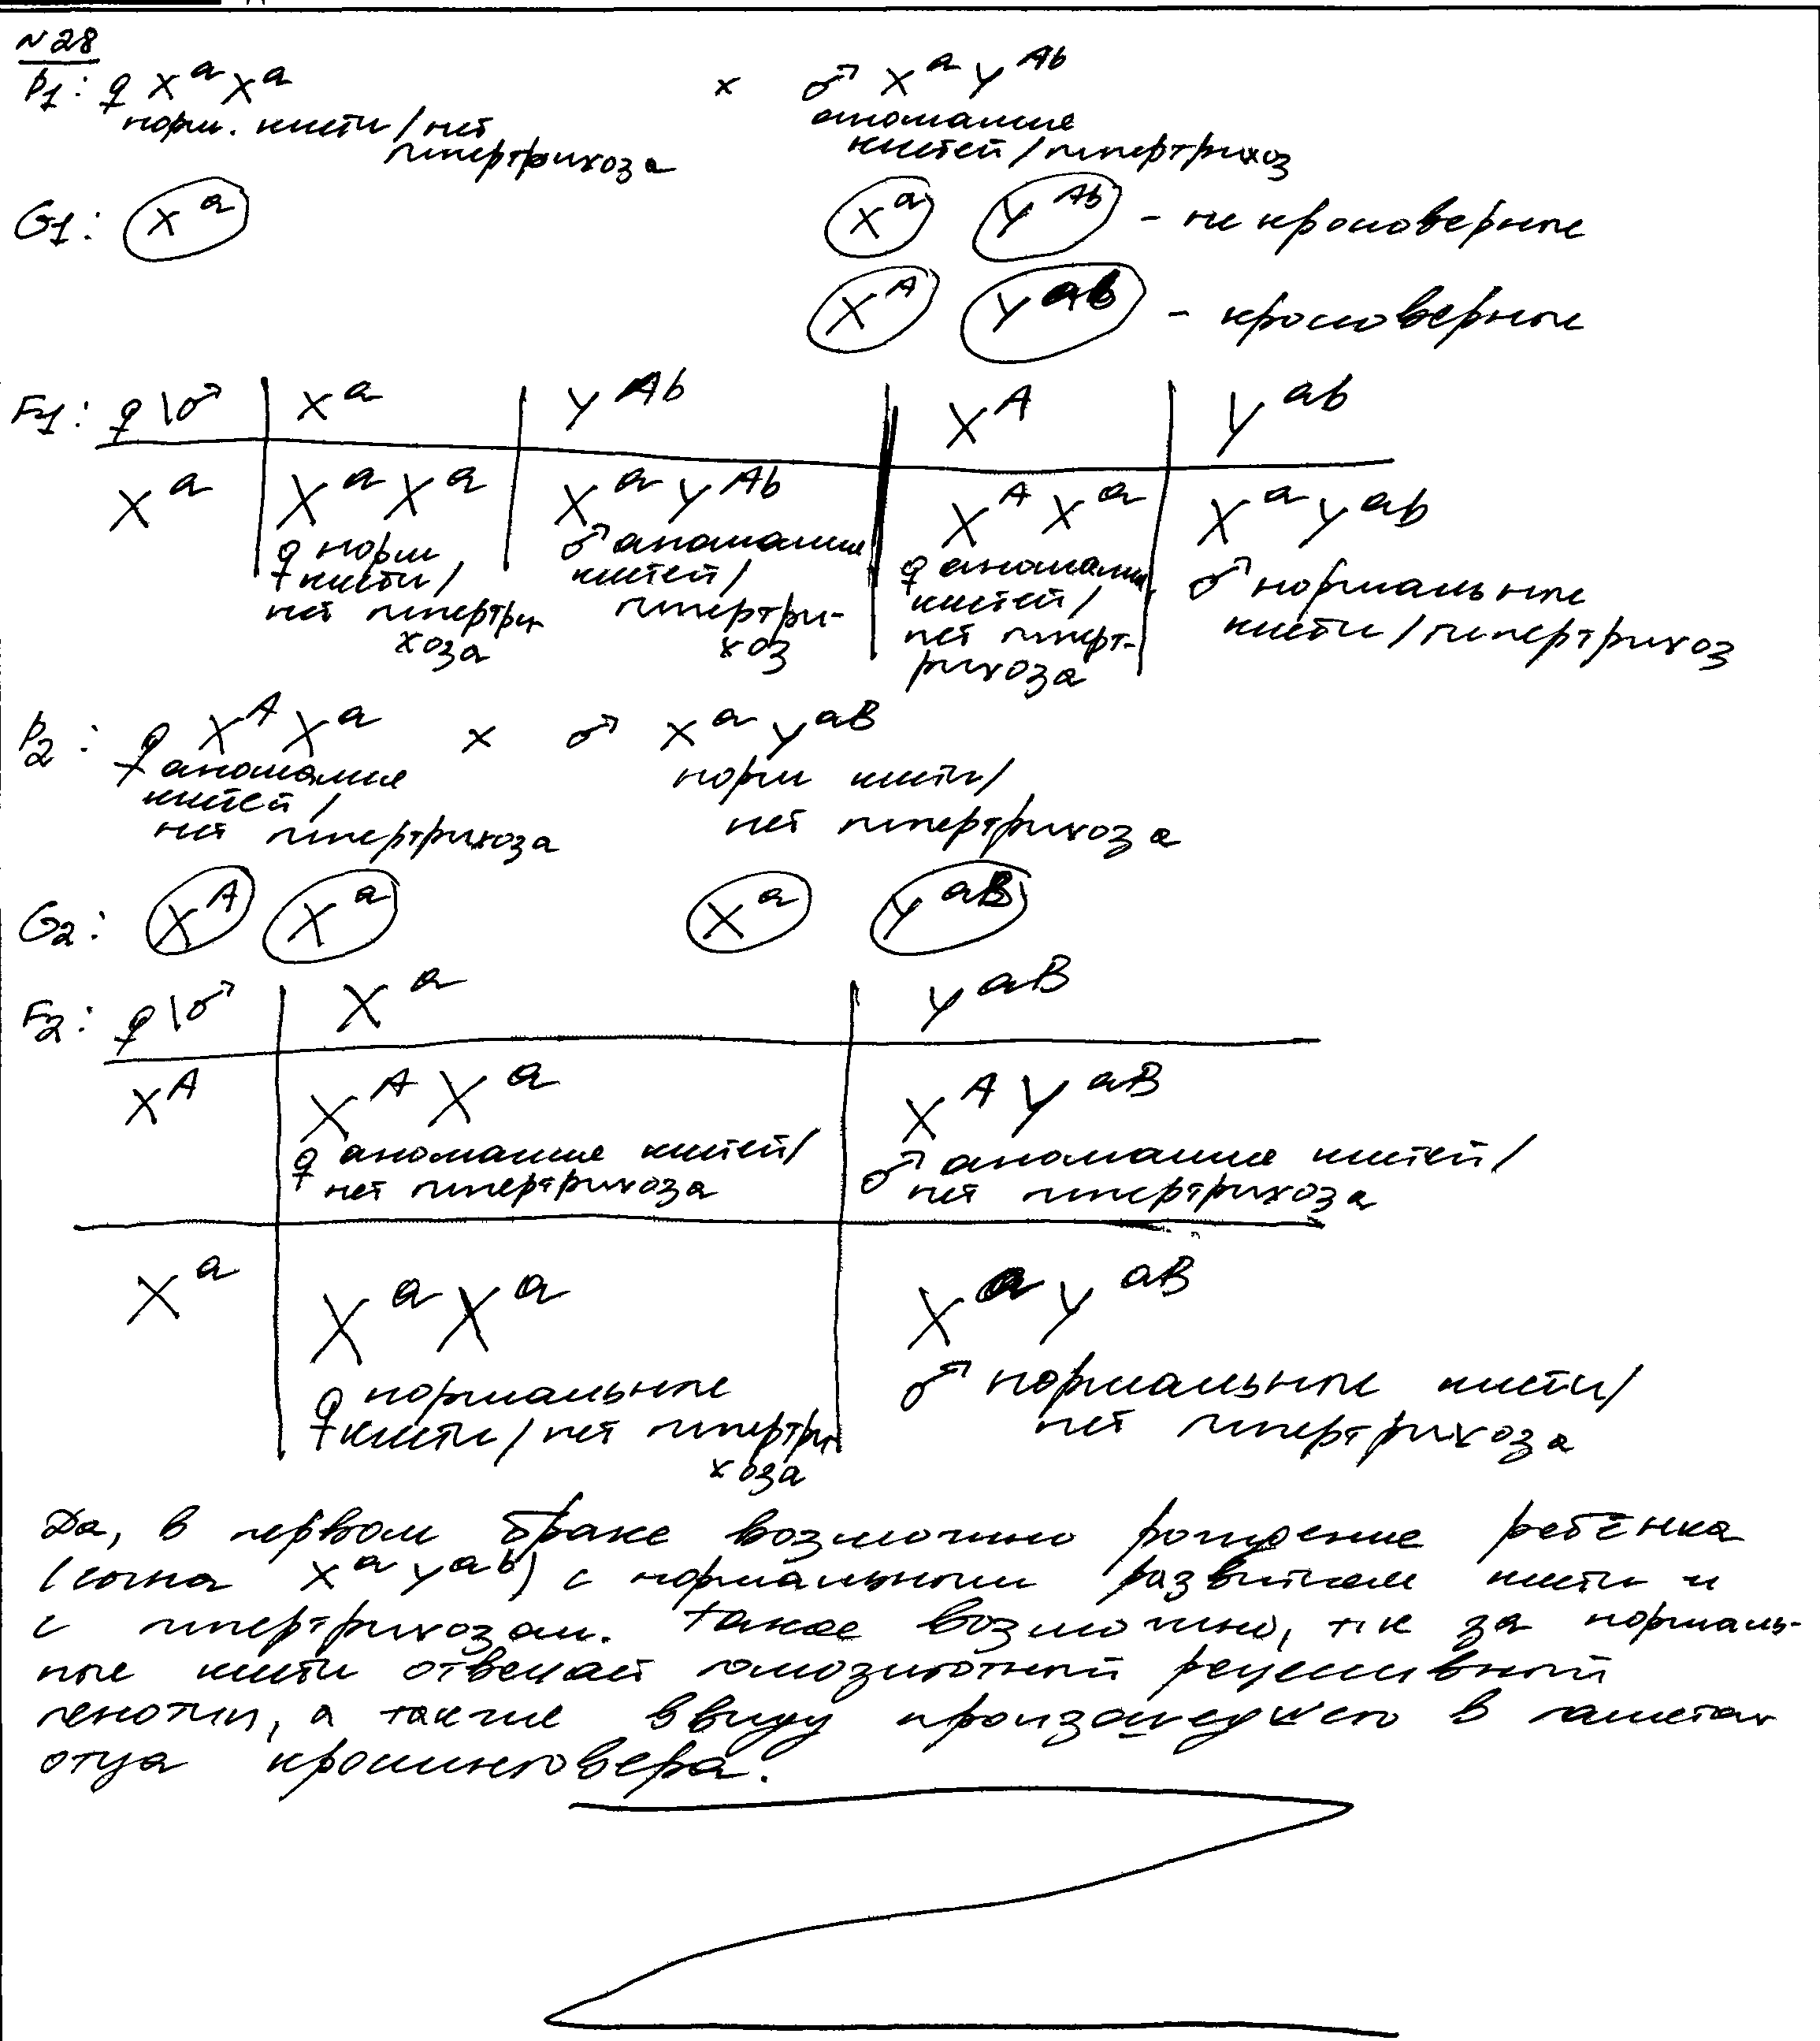 №28
P1: ♀ XᵃXᵃ × ♂ XᵃYᴬᵇ
норм. кисти / нет гипертрихоза
аномалие кистей / гипертрихоз
G1: Xᵃ Xᵃ Yᴬᵇ - не кроссоверные
Xᴬ Yᵃᵇ - кроссоверные
F1: ♀\♂ Xᵃ Yᴬᵇ Xᴬ Yᵃᵇ
Xᵃ XᵃXᵃ XᵃYᴬᵇ XᴬXᵃ XᵃYᵃᵇ
♀ норм кисти / нет гипертрихоза
♂ аномалие кистей / гипертрихоз
♀ аномалия кистей / нет гипертрихоза
♂ нормальные кисти / гипертрихоз
P2: ♀ XᴬXᵃ × ♂ XᵃYᵃᴮ
аномалие кистей / нет гипертрихоза
норм кисти / нет гипертрихоза
G2: Xᴬ Xᵃ Xᵃ Yᵃᴮ
F2: ♀\♂ Xᵃ Yᵃᴮ
Xᴬ XᴬXᵃ XᴬYᵃᴮ
♀ аномалие кистей / нет гипертрихоза
♂ аномалие кистей / нет гипертрихоза
Xᵃ XᵃXᵃ XᵃYᵃᴮ
♀ нормальные кисти / нет гипертрихоза
♂ нормальные кисти / нет гипертрихоза
Да, в первом браке возможно рождение ребёнка
(сына XᵃYᵃᵇ) с нормальным развитием кисти и
с гипертрихозом. Такое возможно, т.к за нормаль-
ные кисти отвечает гомозиготный рецессивный
генотип, а также ввиду произошедшего в гаметах
отца кроссинговера.